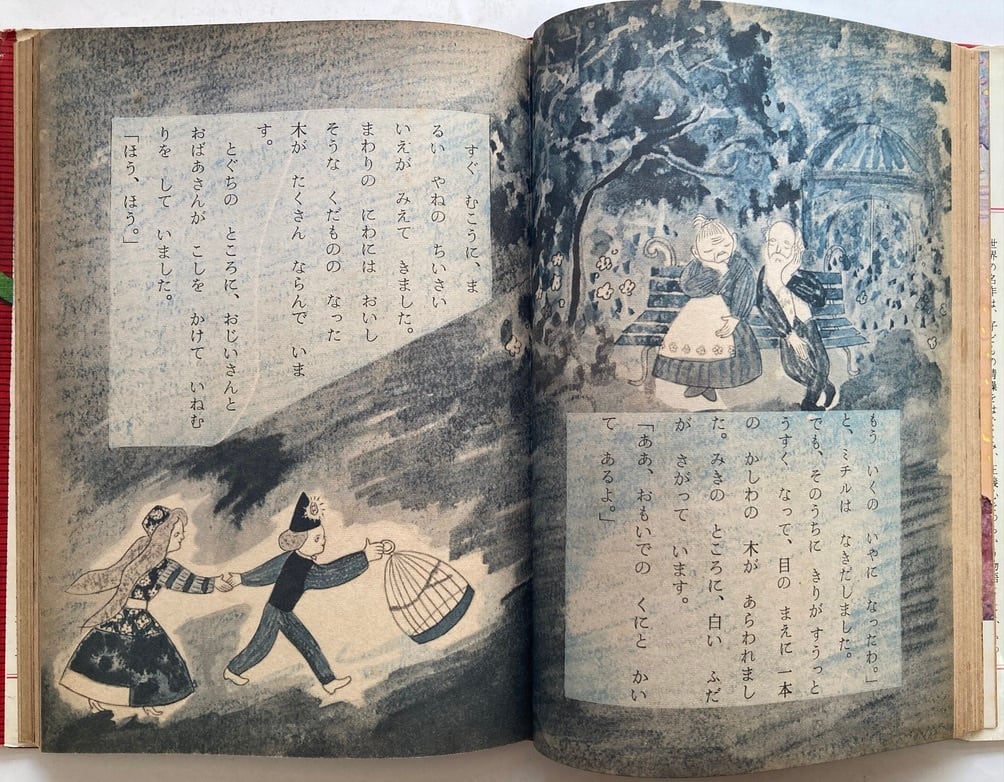 もう いくの いやに なったわ。」
と、ミチルは なきだしました。
でも、そのうちに きりが すうっと
うすく なって、目の まえに 一本
の かしわの 木が あらわれまし
た。みきの ところに、白い ふだ
が さがって います。
「ああ、おもいでの くにと かい
て あるよ。」
すぐ むこうに、ま
るい やねの ちいさい
いえが みえて きました。
まわりの にわには おいし
そうな くだものの なった
木が たくさん ならんで いま
す。
とぐちの ところに、おじいさんと
おばあさんが こしを かけて いねむ
りを して いました。
「ほう、ほう。」
世界の名作は、